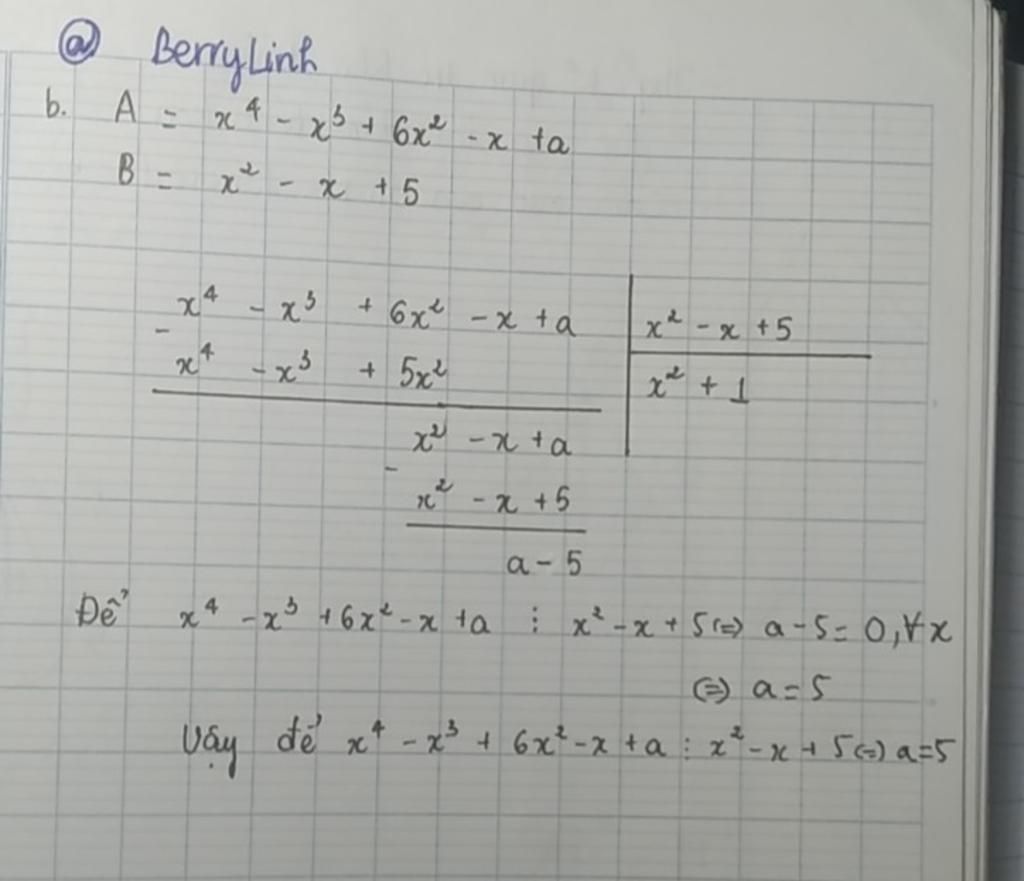 @ BerryLinh
b. A = x⁴ - x³ + 6x² - x + a
B = x² - x + 5
x⁴ - x³ + 6x² - x + a | x² - x + 5
- x⁴ - x³ + 5x² | x² + 1
x² - x + a
- x² - x + 5
a - 5
Để x⁴ - x³ + 6x² - x + a ⋮ x² - x + 5 (=) a - 5 = 0, ∀x
(=) a = 5
Vậy để x⁴ - x³ + 6x² - x + a ⋮ x² - x + 5 (=) a = 5